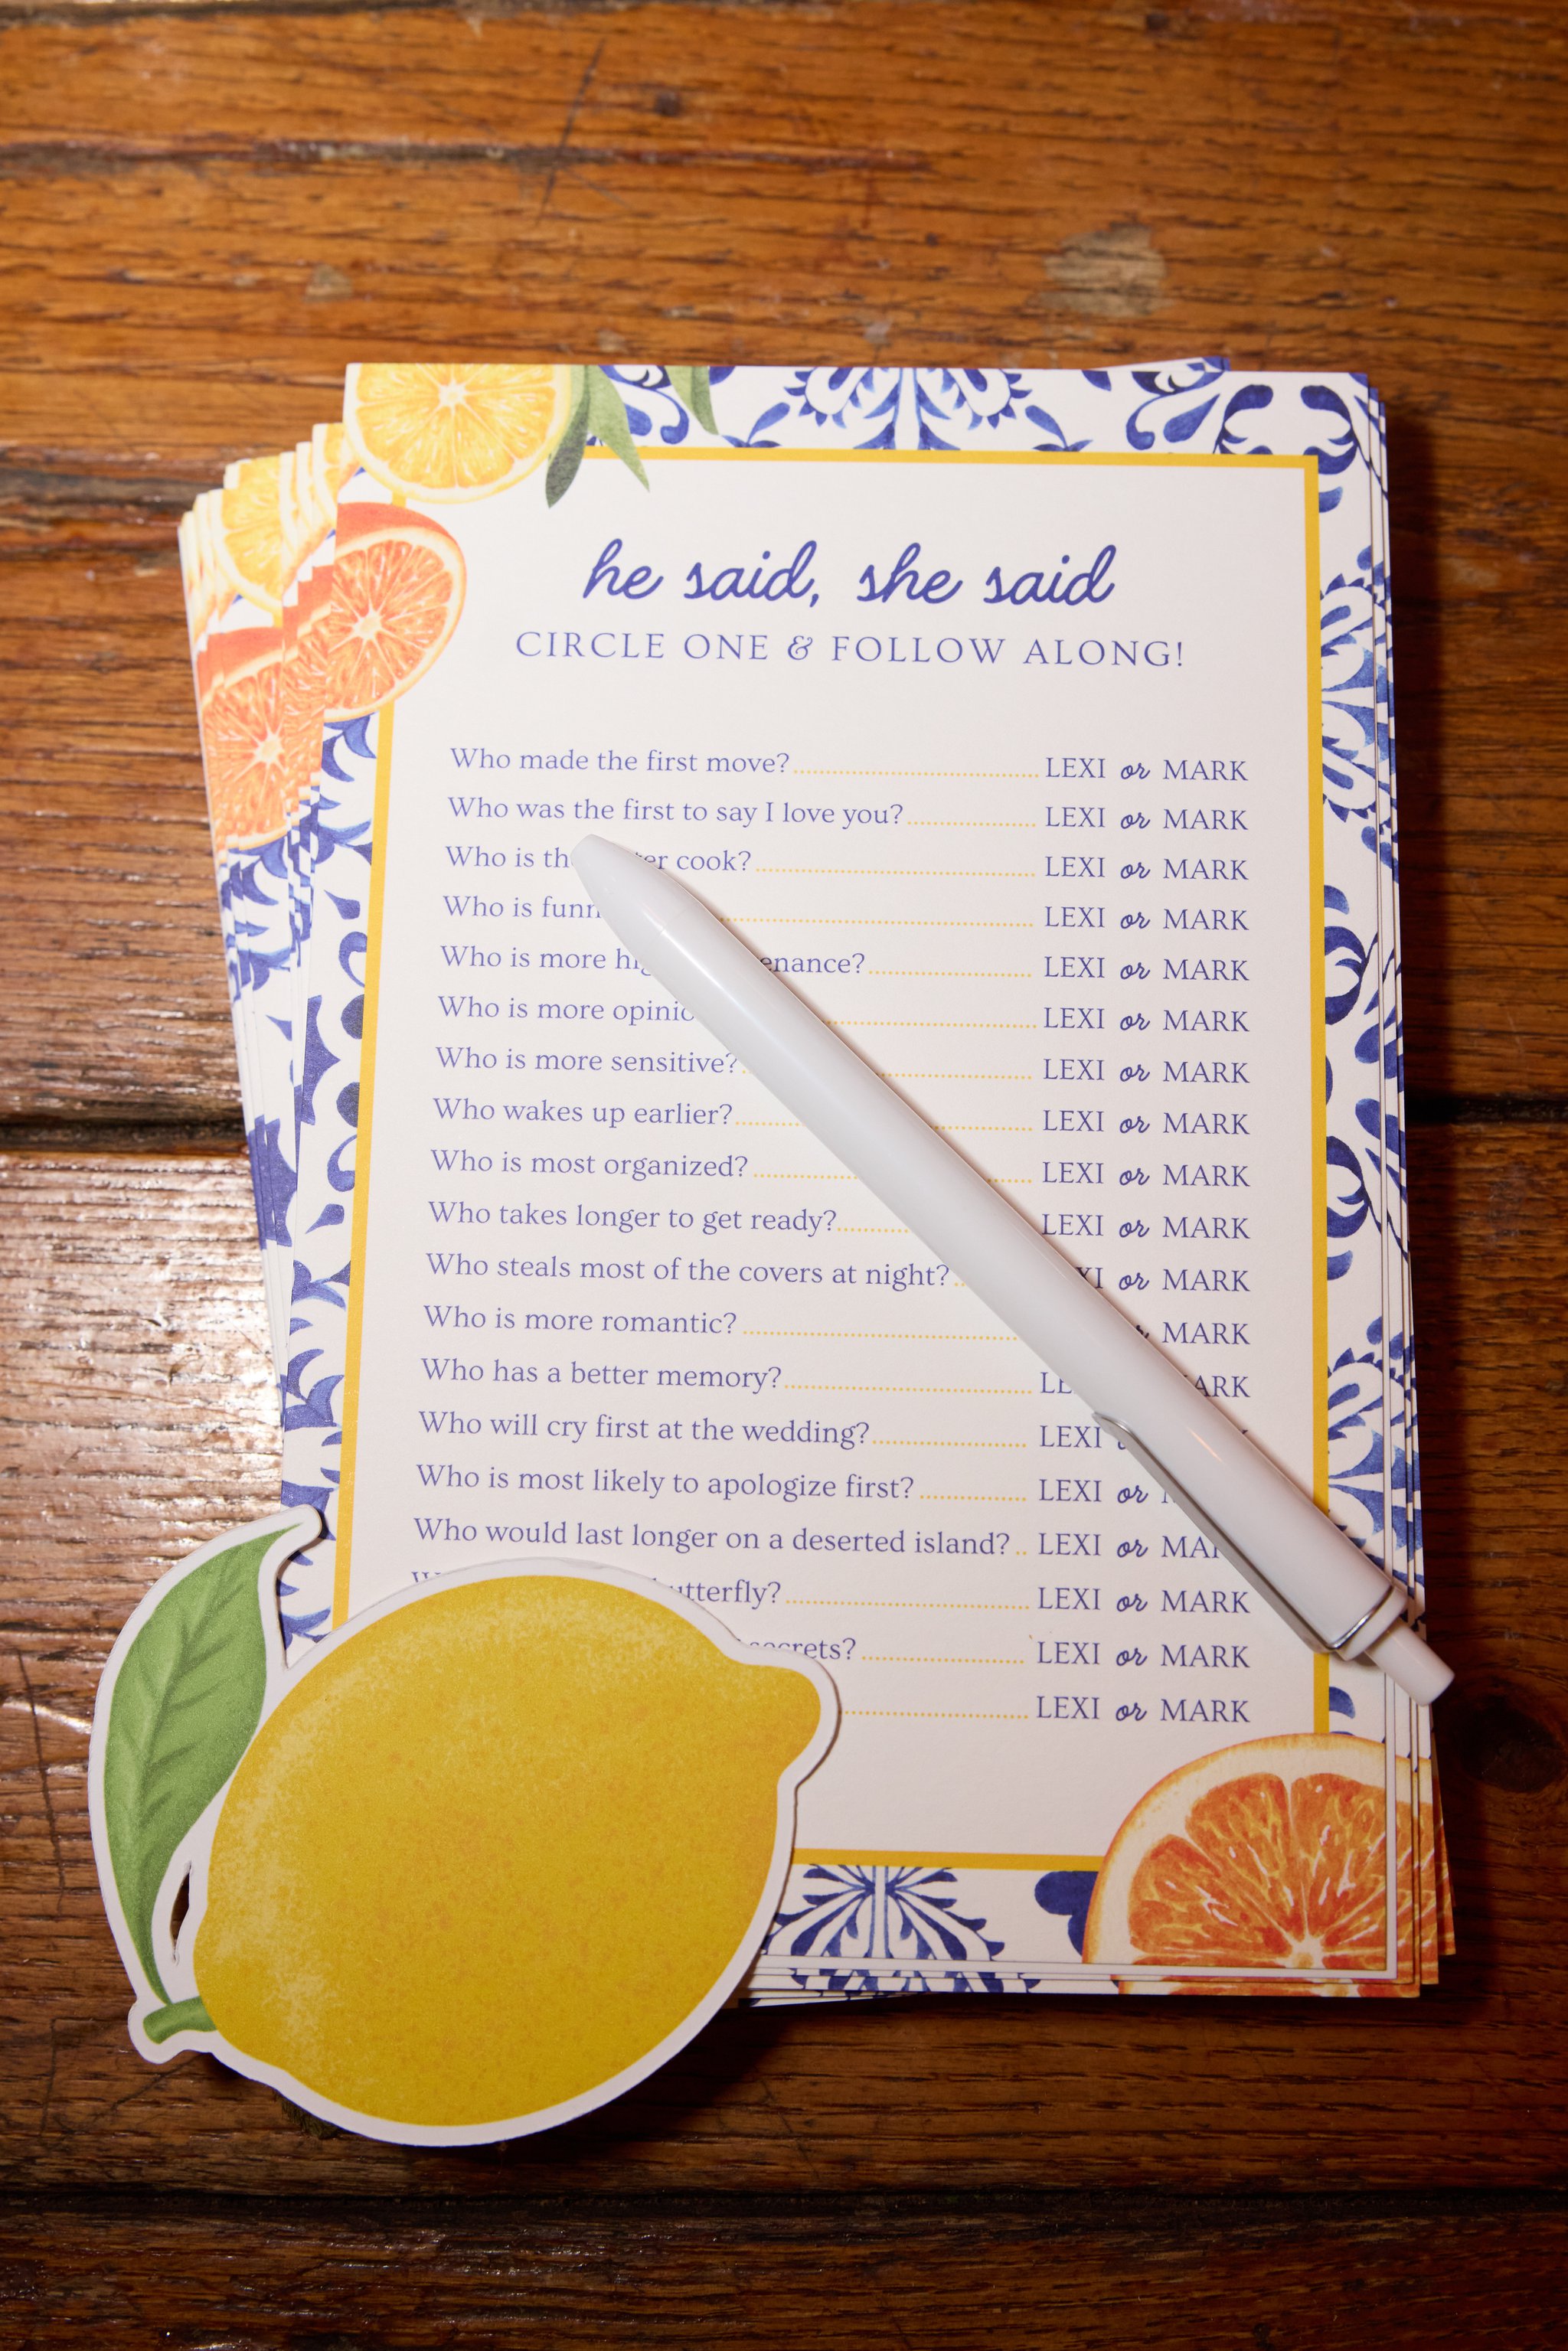 he said, she said
CIRCLE ONE & FOLLOW ALONG!
Who made the first move? LEXI or MARK
Who was the first to say I love you? LEXI or MARK
Who is cook? LEXI or MARK
Who is LEXI or MARK
Who is more LEXI or MARK
Who is more LEXI or MARK
Who is more sensitive? LEXI or MARK
Who wakes up earlier? LEXI or MARK
Who is most organized? LEXI or MARK
Who takes longer to get ready? LEXI or MARK
Who steals most of the covers at night? or MARK
Who is more romantic? MARK
Who has a better memory?
Who will cry first at the wedding? LEXI
Who is most likely to apologize first? LEXI or
Who would last longer on a deserted island? LEXI or
LEXI or MARK
secrets? LEXI or MARK
LEXI or MARK